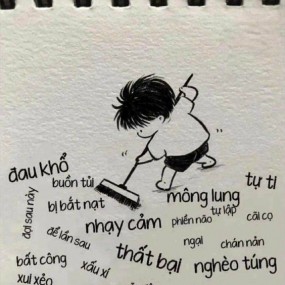 đau khổ
buồn tủi
đợi sau này
bị bắt nạt
mông lung
tự ti
tự lập
nhạy cảm
phiền não
cãi cọ
để lần sau
ngại
chán nản
bất công
xấu xí
thất bại
nghèo túng
xui xẻo